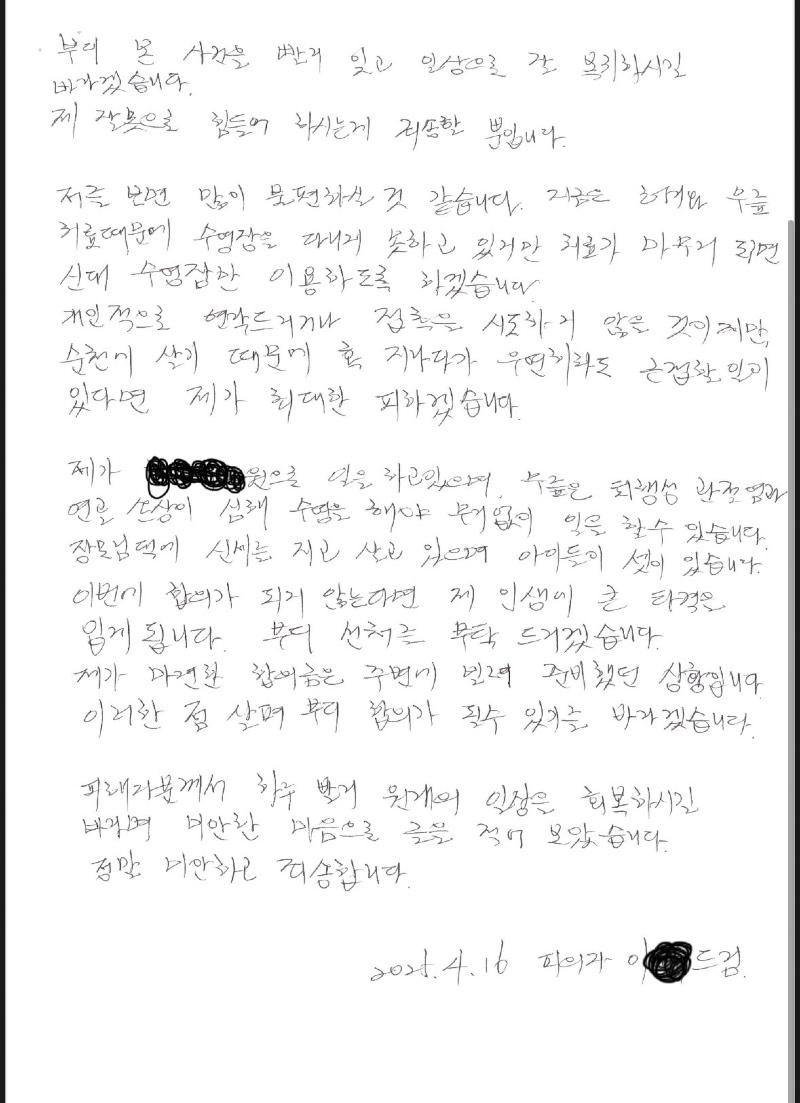 부디 본 사건을 빨리 잊고 일상으로 잘 복귀하시길
바라겠습니다.
제 잘못으로 힘들어 하시는게 죄송할 뿐입니다.
저를 보면 많이 불편하실 것 같습니다. 지금은 허리와 무릎
치료때문에 수영장을 다니지 못하고 있지만 치료가 마무리 되면
신대 수영장만 이용하도록 하겠습니다.
개인적으로 연락드리거나 접촉을 시도하지 않을 것이지만,
순천에 살기 때문에 혹 지나다가 우연히라도 근접할 일이
있다면 제가 최대한 피하겠습니다.
제가 원으로 일을 하고있으며, 무릎은 퇴행성 관절염과
연골 손상이 심해 수영을 해야 무리없이 일을 할수 있습니다.
장모님댁에 신세를 지고 살고 있으며 아이들이 셋이 있습니다.
이번에 합의가 되지 않는다면 제 인생에 큰 타격을
입게 됩니다. 부디 선처를 부탁 드리겠습니다.
제가 마련한 합의금은 주변에 빌려 준비했던 상황입니다.
이러한 점 살펴 부디 합의가 될수 있기를 바라겠습니다.
피해자분께서 하루 빨리 원래의 일상을 회복하시길
바라며 미안한 마음으로 글을 적어 보았습니다.
정말 미안하고 죄송합니다.
2025.4.16 피의자 이 드림.